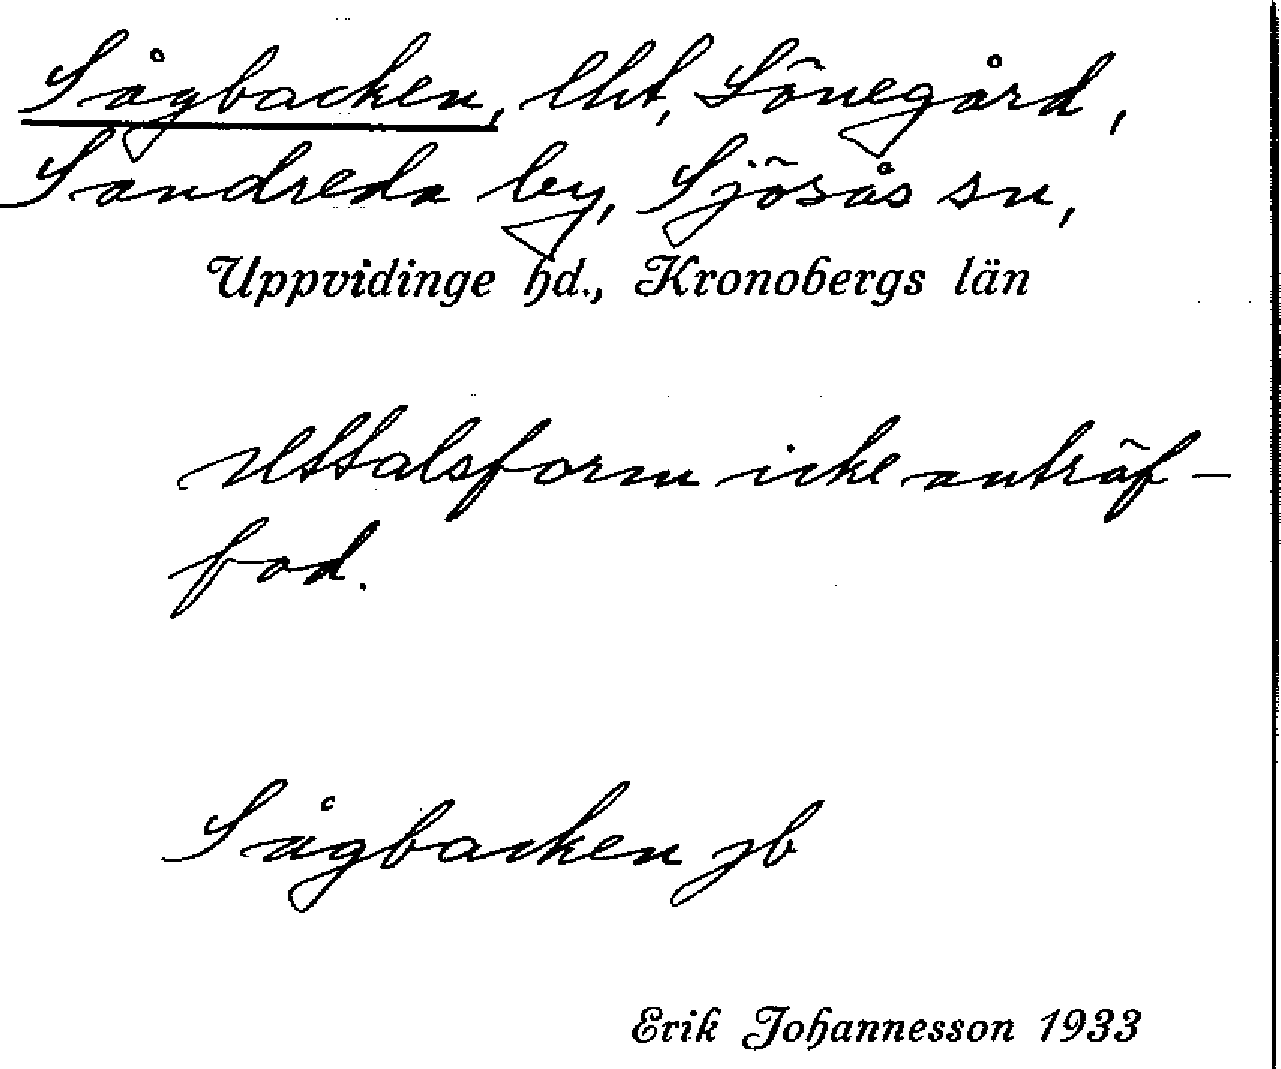 Sågbacken, lht, Lönegård,
Sandreda by, Sjösås sn,
Uppvidinge hd., Kronobergs län
Uttalsform icke anträf-
fad.
Sågbacken jb
Erik Johannesson 1933